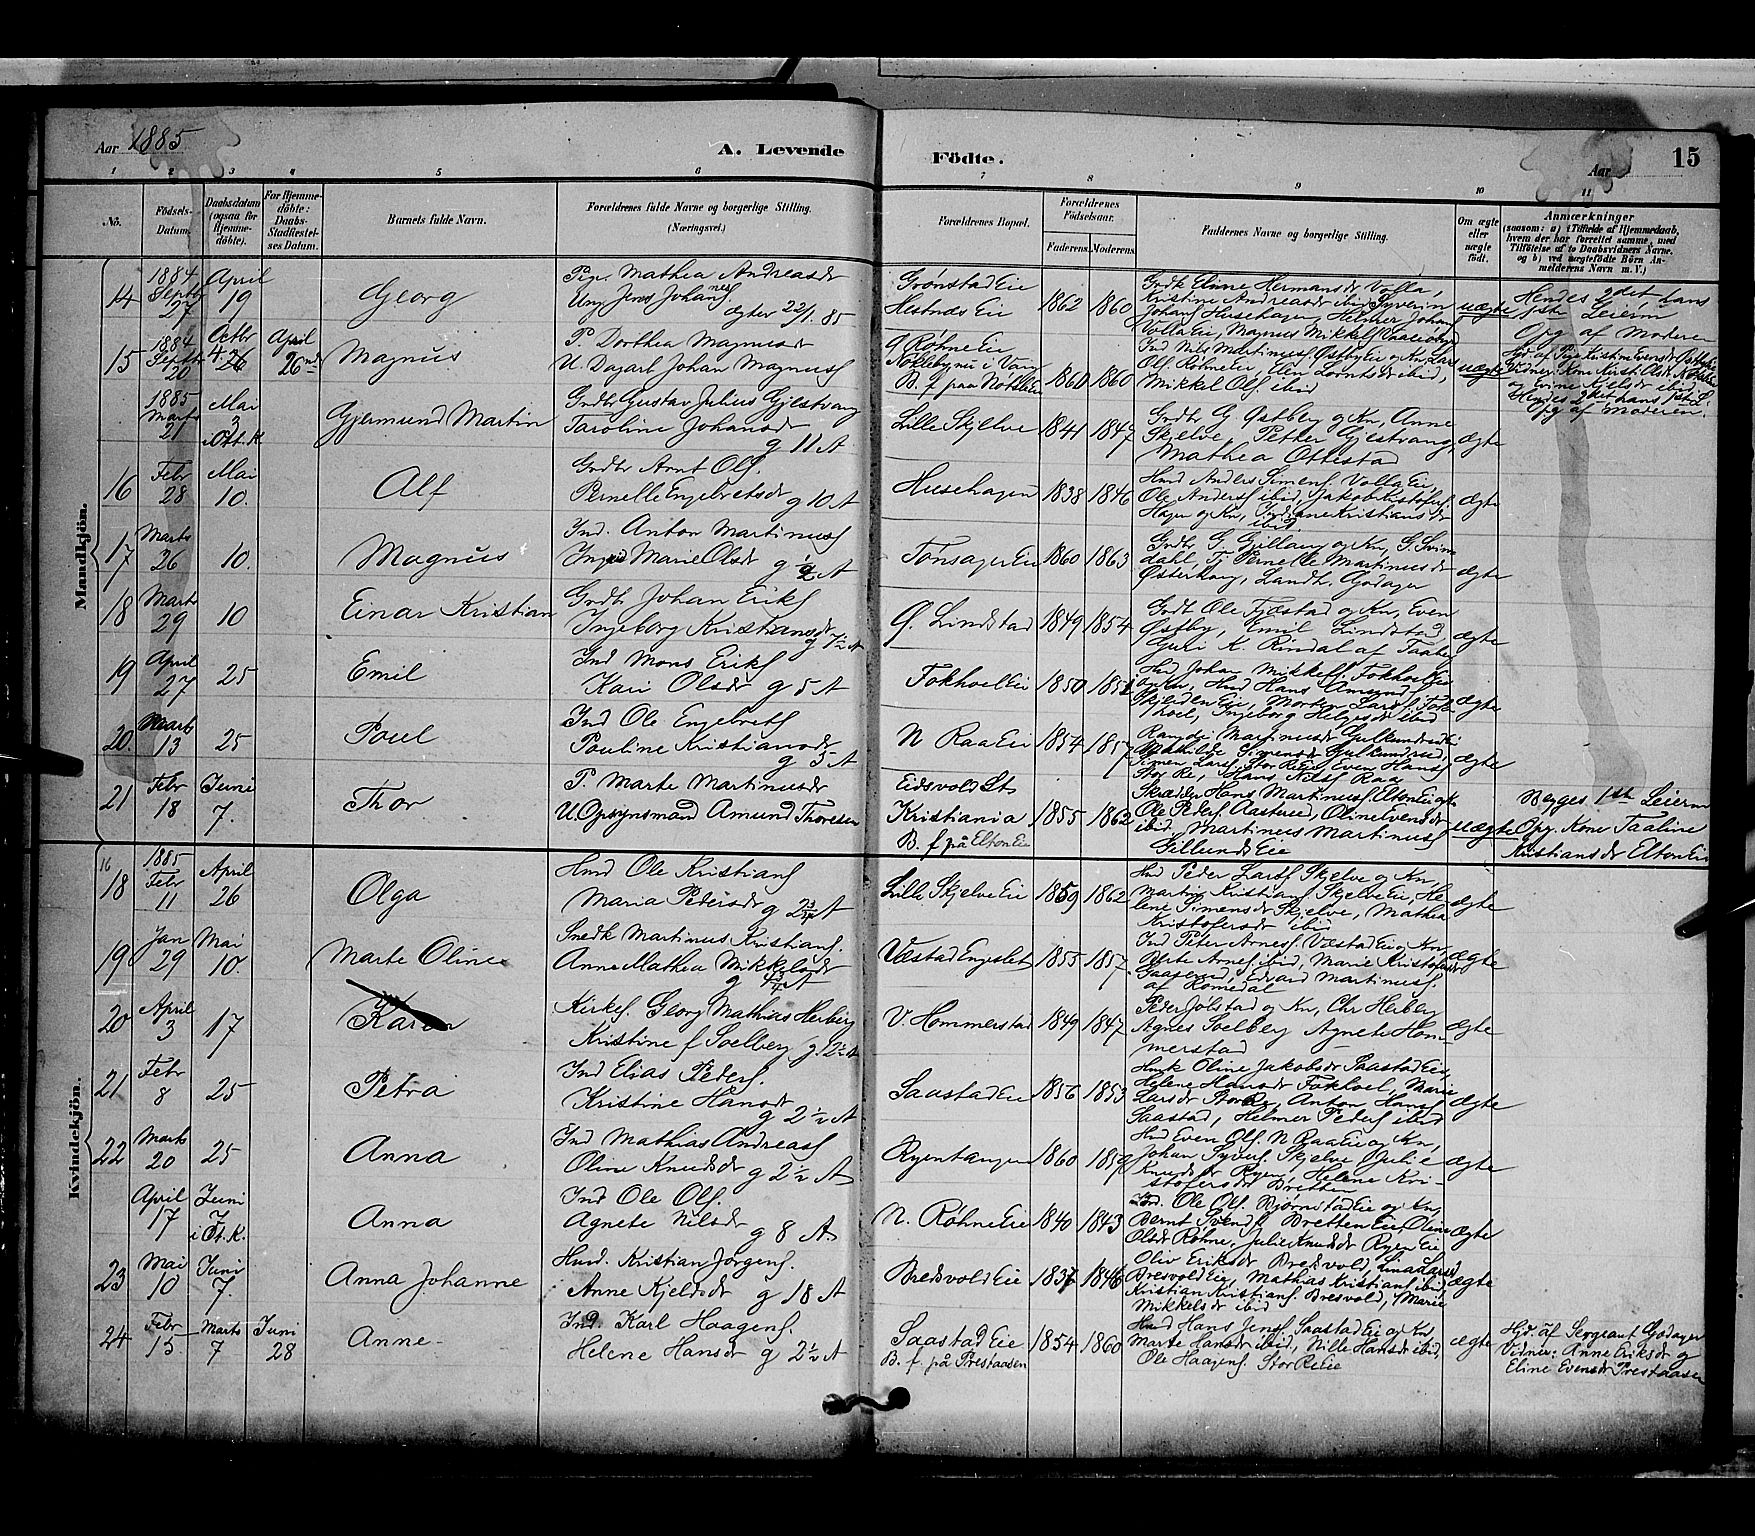 Aar 1885
A. Levende Födte.
Aar
15
1 2 3 4 5 6 7 8 9 10 11
No.
Födsels-Datum.
Daabsdatum (ogsaa for Hjemmedöbte).
For Hjemmedöbte: Daabs-Stadfæstelses Datum.
Barnets fulde Navn.
Forældrenes fulde Navne og borgerlige Stilling. (Næringsvei.)
Forældrenes Bopæl.
Forældrenes Födselsaar.
Faderens. Moderens.
Faddernes Navne og borgerlige Stilling.
Om ægte eller uægte födt.
Anmærkninger
(saasom: a) i Tilfælde af Hjemmedaab, hvem der har forrettet samme, med Tilföielse af to Daabsvidners Navne, og b) ved uægtefödte Börn Anmelderens Navn m. V.)
Mandkjön.
14 1884 Septbr 27 April 19 Georg
Pige Mathea Andreasdr
Ung. Jens Johannesf. ægter 22/1 85
Grønstad Eie
Hestnæs Eie 1862 1860
Grdk Eline Hermansdr Volla,
Kristine Andreasdr ibid, Syverin
Johansf Husehagen, Helmer Johansf
Volla Eie, Magnus Mikkelsf
uægte
Hendes 2det, hans
1ste Leierm
Opg af Moderen
15 1884 Septbr 20 Octbr 26 April 26 Magnus
P. Dorthea Magnusdr
U. Dagarb Johan Magnusf
Røhne Eie
Nøkleby nu i Vang
B. f paa Nøkleby 1860 1860
Ind Nils Martinusf Østby Eie og Kn, Lars
Olsf. Røhne Eie, Elen Lorntsdr ibid,
Mikkel Olsf ibid
uægte
Vidner: Kone Kirsti Olsdr
og Eline Kjelsdr ibid
Hendes 2det hans 1ste L.
Opg af Moderen.
1885 Marts 21 Mai 3 i Ott. K. Gjermund Martin
Grdbr Gustav Julius Gjestvang
Karoline Johansdr
g 11 A
Lille Skjelve 1841 1847
Grdbr G Østby og Kn, Anne
Skjelve, Petter Gjestvang,
Mathea Ottestad
ægte
16 Febr 28 Mai 10. Alf
Grdbr Arnt Olsf.
Pernelle Engebretsdr g 10 A
Husehagen 1838 1846
Hmd Anders Simensf Volla Eie,
Ole Andersf ibid, Jakob Kristofersf
Hagen og Kn, Kristiansdr
ibid.
ægte
17 Marts 26 10. Magnus
Ind. Anton Martinusf
Ingeid Marie Olsdr g 1/2 A
Tønsager Eie 1860 1863
Grdbr G Gjillaug og Kn, G. Svindahl, Tj Pernelle Martinusdr
Østerhaug, Landh. Godager
ægte
18 Marts 29 10 Einar Kristian
Grdbr Johan Eriksf
Ingeborg Kristiansdr
g 7 1/2 A
Ø. Lindstad 1849 1854
Grdb Ole Fjæstad og Kn, Even
Østby, Emil Lindstad,
Guri K. Rindal af Faaberg
ægte
19 April 27 25 Emil
Ind Mons Eriksf
Kari Olsdr g 5 A
Fokhol Eie 1850 1851
Hmd Johan Mikkelsf Fokhol Eie
og Kn, Hmd Hans Amundsf
Skjelden Eie, Morten Larsf. Fokhol, Ingeborg Helgesdr ibid
ægte
20. Marts 13 25 Poul
Ind Ole Engebretsf
Pauline Kristiansdr
g 3 A
N Raa Eie 1854 1857
Mathilde Simensdr Gulkundrud,
Simen Larsf Stor Re Eie, Even Hansf
Stor Re, Hans Nilsf Raa
ægte
21 Febr 18 Juni 7. Thor
P. Marte Martinusdr
U. Opsynsmand Amund Thoresen
Eidsvold St
Kristiania
B. f på Elton Eie 1855 1862
Skrædder Hans Martinusf. Elton Eie og Kn
Ole Pedersf Aasterud, Oline Evensdr
ibid. Martinus Martinusf
Gillund Eie
uægte
Begges 1ste Leierm
Opg. Kone Taaline
Kristiansdr Elton Eie
Kvindekjön.
16
18 1885 Febr 11 April 26 Olga
Hmd Ole Kristiansf
Maria Pedersdr g 2 3/4 A
Lille Skjelve Eie 1859 1862
Hmd Peder Larsf Skjelve og Kn,
Martin Kristiansf Skjelve Eie, Helene Simensdr Skjelve, Mathea
Kristofersdr ibid
ægte
19 Jan 29 Mai 10. Marte Oline
Snedk Martinus Kristiansf.
Anne Mathea Mikkelsdr
Væstad Engeslet 1855 1857
Ind Peter Arnesf. Væstad Eie og Kn,
Marte Arnesf. ibid, Marie Kristofersdr
Gaaserud, Edvard Martinusf.
af Romedal
ægte
20 April 3 17 Karen
Kirkes. Georg Mathias Herberg
Kristine f Soelberg g. 12 1/2 A
V. Hommerstad 1849 1847
Peder Jølstad og Kn, Chr Herberg
Agnes Soelberg Agnete Hommerstad
ægte
21 Febr 8 25 Petra
Ind Elias Pedersf.
Kristine Hansdr
g 2 1/2 A
Saastad Eie 1856 1853
Husk Oline Jakobsdr Saastad Eie,
Helene Hansdr Fokhol, Marie
Larsdr Stor Re, Anton Hansf
Saastad, Helmer Pedersf ibid
ægte
22 Marts 20 25 Anna
Ind Mathias Andreasf
Oline Knudsdr g 2 1/2 A
Ryentangen 1860 1859
Hmd Even Olsf. N Raa Eie og Kn,
Johan Syversf. Skjelve, Julie
Knudsdr Ryen, Helene Kristofersdr Bretten
ægte
April 17 Juni 7 i Ot. K. Anna
Ind Ole Olsf.
Agnete Nilsdr
g 8 A
N. Røhne Eie 1840 1843
Ind. Ole Olsf. Bjørnstad Eie og Kn,
Bernt Svendsf Bretten Eie, Oline
Olsdr Røhne, Julie Knudsdr Ryen Eie
ægte
23 Mai 10 Juni 7. Anna Johanne
Husm. Kristian Jørgensf.
Anne Kjeldsdr g 18 A
Bredsvold Eie 1837 1846
Oliv Eriksdr Bredsvold,
Bresvold Eie, Mathias Kristiansf ibid,
Kristian Kristiansf. Bresvold, Marie
Mikkelsdr ibid
ægte
24 Febr 15 Marts 7 Juni 28 Anne
Ind. Karl Haagensf.
Helene Hansdr g 2 1/2 A
Saastad Eie
B. f. på Prestaasen 1854 1860
Hmd Hans Jensf Saastad Eie og Kn
Marte Hansdr ibid, Nille Hansdr ibid,
Ole Haagensf Stor Re Eie
ægte
Hjd. af Sergeant Godager
Vidner: Anne Eriksdr og
Eline Evensdr Prestaasen